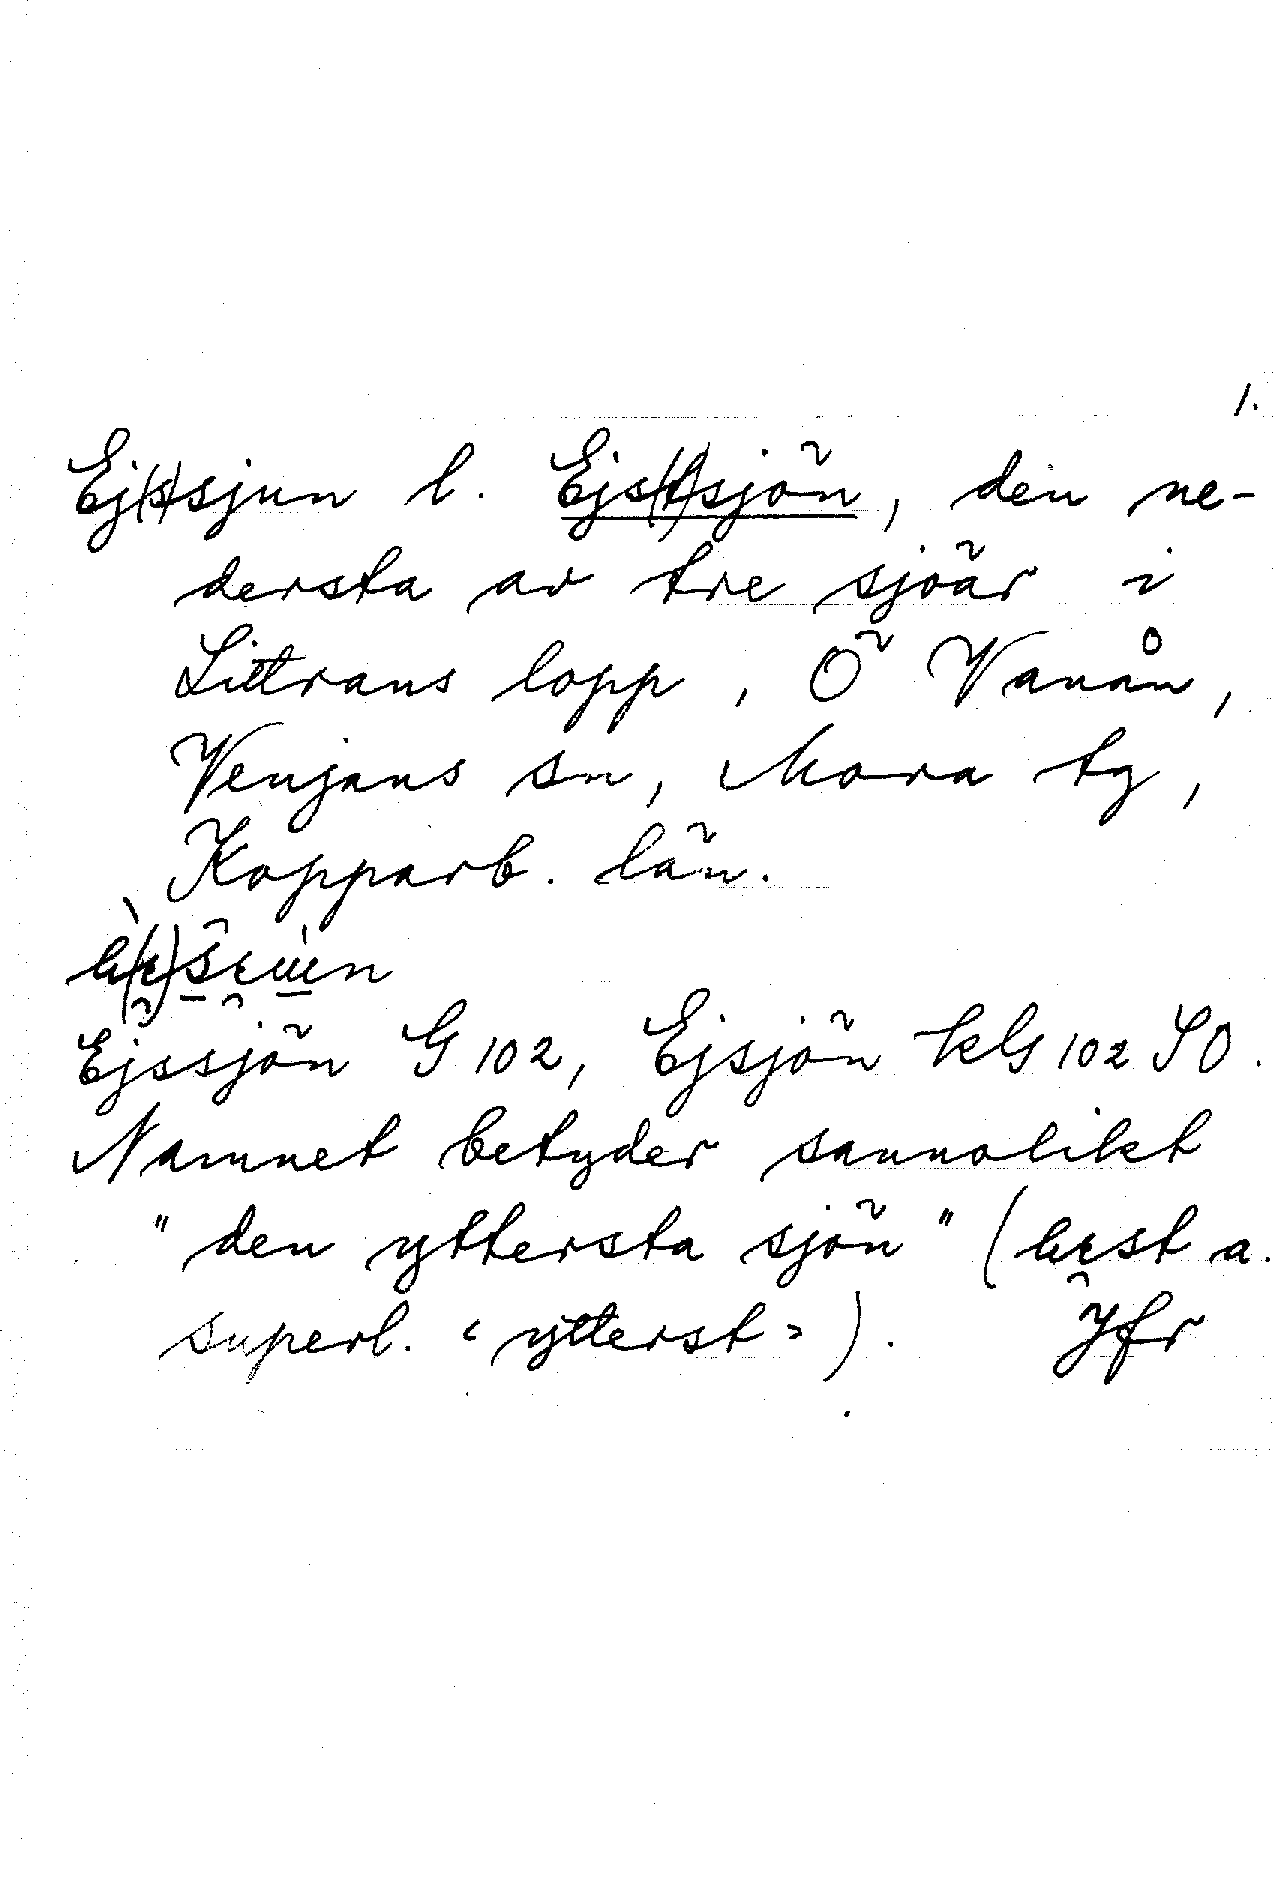 1.
Ej(s)sjun l. Ejs(t)sjön, den ne-
dersta av tre sjöar i
Littrans lopp, Ö Vanån,
Venjans sn, Mora tg,
Kopparb. län.
Ejssjön G 102, Ejsjön kG 102 SO.
Namnet betyder sannolikt
"den yttersta sjön" ( a.
superl. ‹ ytterst › ). Jfr